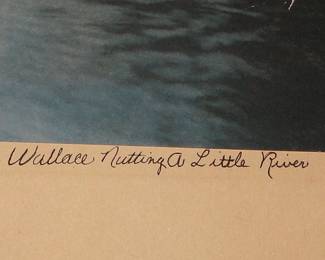 Wallace Nutting A Little River